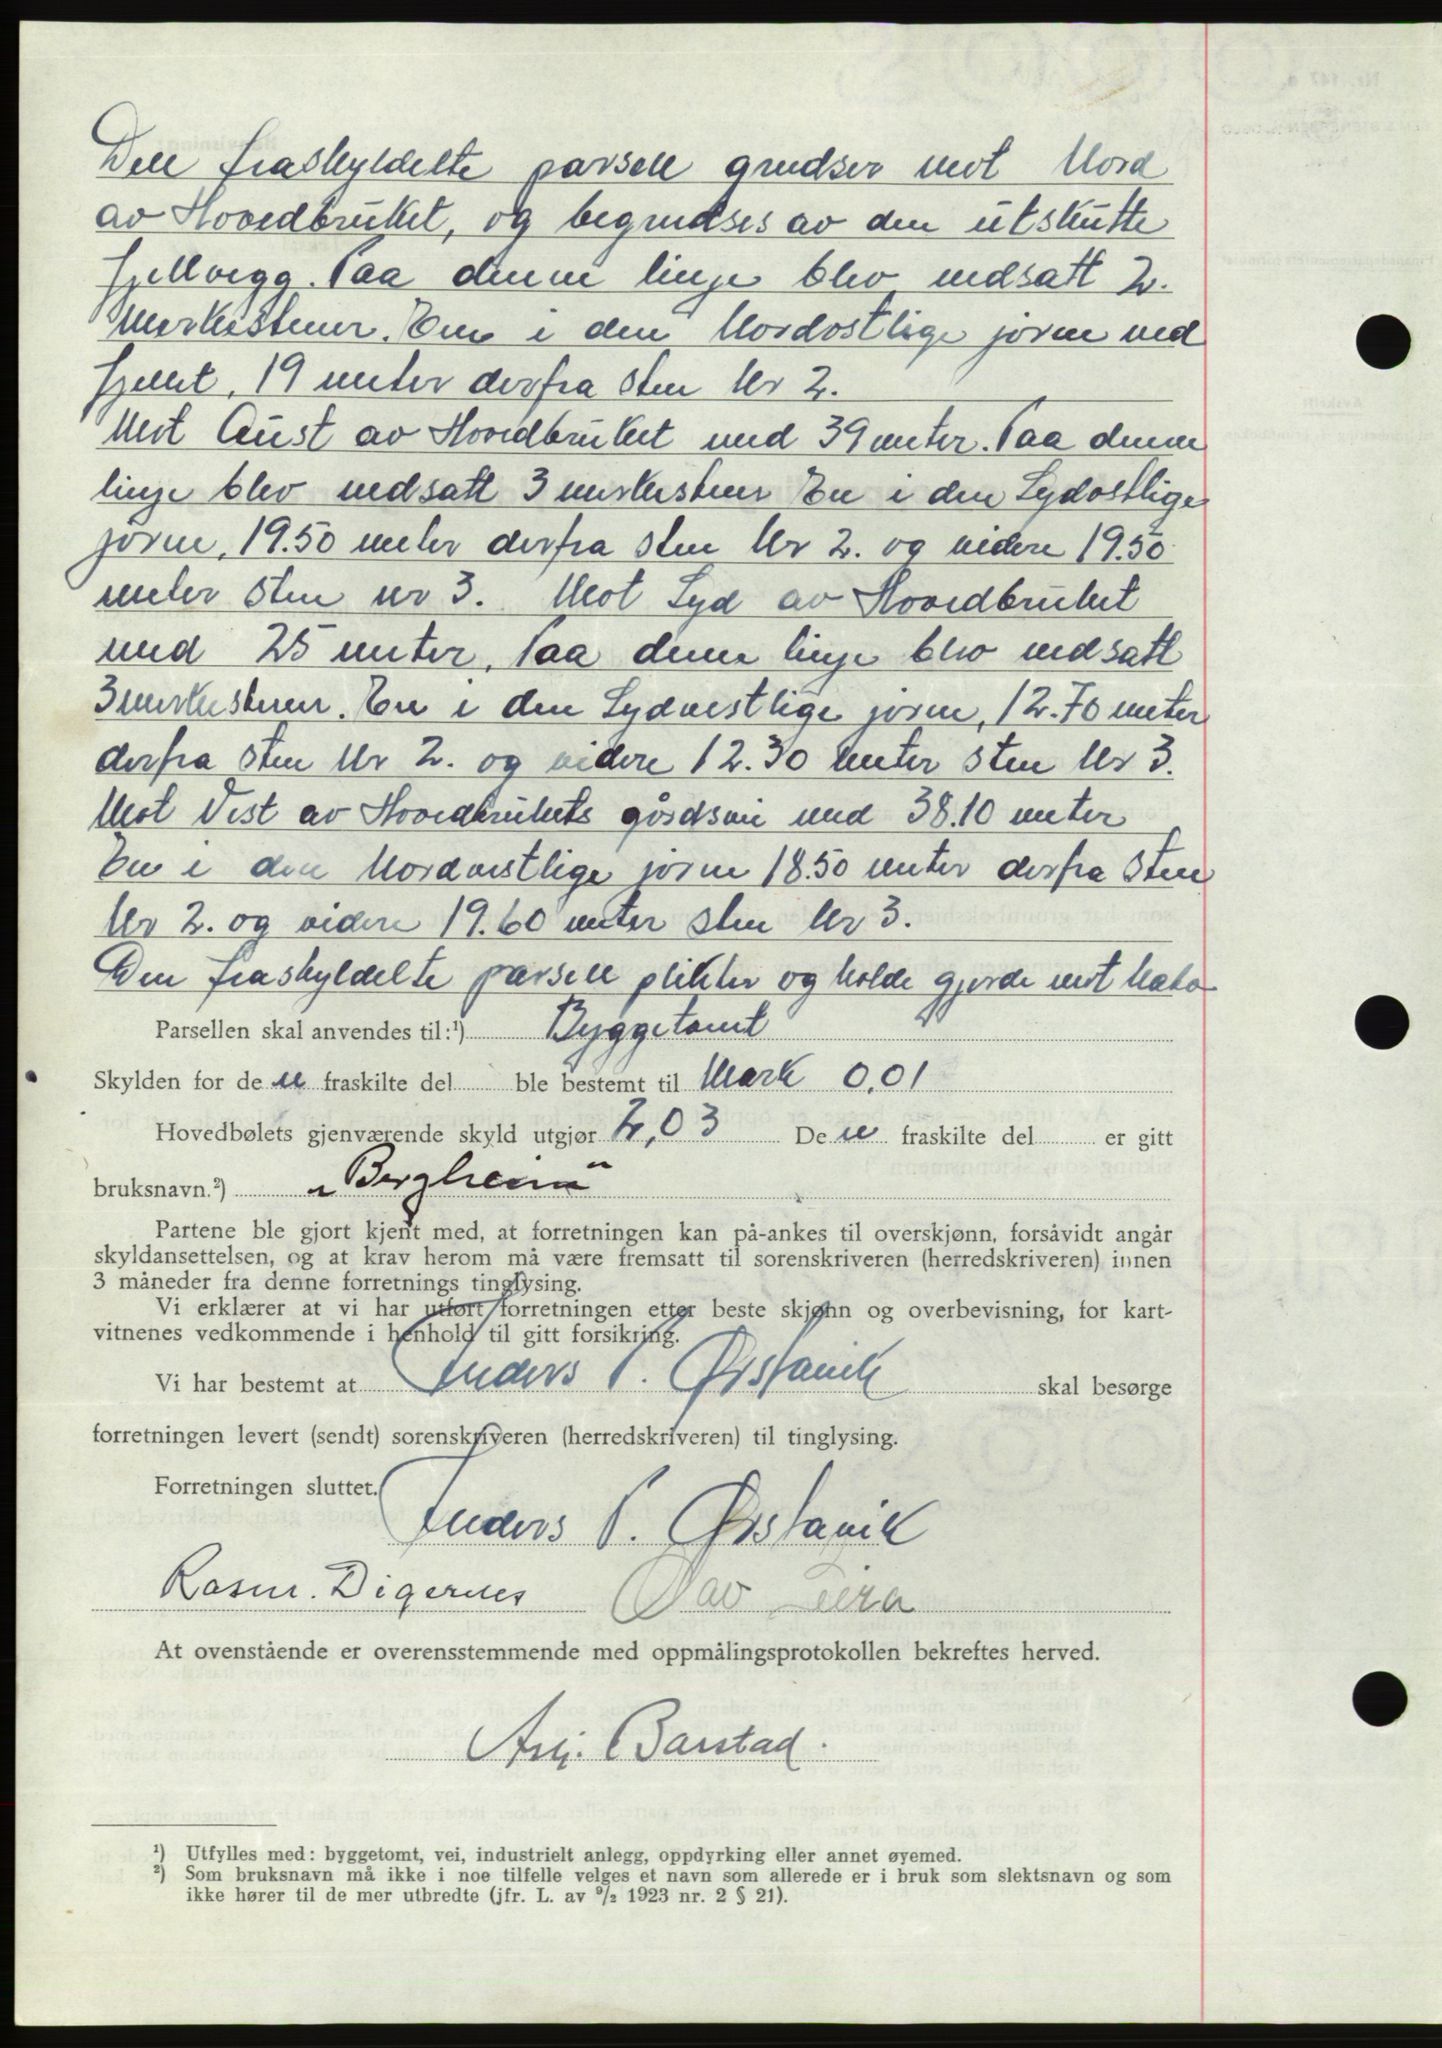 Den fraskyldelte parsell grendser mot Nord
av Hovedbruket, og begrendses av den utskutte
fjellvegg. Paa denne linje blev nedsatt 2.
Merkestener. En i den Nordostlige jørne ved
fjellet, 19 meter derfra sten Nr 2.
Mot Aust av Hovedbruket med 39 meter. Paa denne
linje blev nedsatt 3 merkestener En i den Sydostlige
jørne, 19.50 meter derfra sten Nr 2. og videre 19.50
meter sten nr 3. Mot Syd av Hovedbruket
med 25 meter, Paa denne linje blev nedsatt
3 merkestener. En i den Sydvestlige jørne, 12.70 meter
derfra sten Nr 2. og videre 12.30 meter sten Nr 3.
Mot Vest av Hovedbrukets gårdsvei med 38.10 meter
En i den Nordvestlige jørne 18.50 meter derfra sten
Nr 2. og videre 19.60 meter sten Nr 3.
Den fraskyldelte parsell plikter og holde gjerde mot
Parsellen skal anvendes til:¹) Byggetomt
Skylden for de n fraskilte del ble bestemt til Mark 0,01
Hovedbølets gjenværende skyld utgjør 2,03 De n fraskilte del er gitt
bruksnavn.²) „Bergheim“
Partene ble gjort kjent med, at forretningen kan på-ankes til overskjønn, forsåvidt angår
skyldansettelsen, og at krav herom må være fremsatt til sorenskriveren (herredskriveren) innen
3 måneder fra denne forretnings tinglysing.
Vi erklærer at vi har utført forretningen etter beste skjønn og overbevisning, for kart-
vitnenes vedkommende i henhold til gitt forsikring.
Vi har bestemt at Anders P. Ørstavik skal besørge
forretningen levert (sendt) sorenskriveren (herredskriveren) til tinglysing.
Forretningen sluttet.
Anders P. Ørstavik
Rasm. Digernes Olav Leira
At ovenstående er overensstemmende med oppmålingsprotokollen bekreftes herved.
Asbj. Barstad.
¹) Utfylles med: byggetomt, vei, industrielt anlegg, oppdyrking eller annet øyemed.
²) Som bruksnavn må ikke i noe tilfelle velges et navn som allerede er i bruk som slektsnavn og som
ikke hører til de mer utbredte (jfr. L. av ⁹/₂ 1923 nr. 2 § 21).